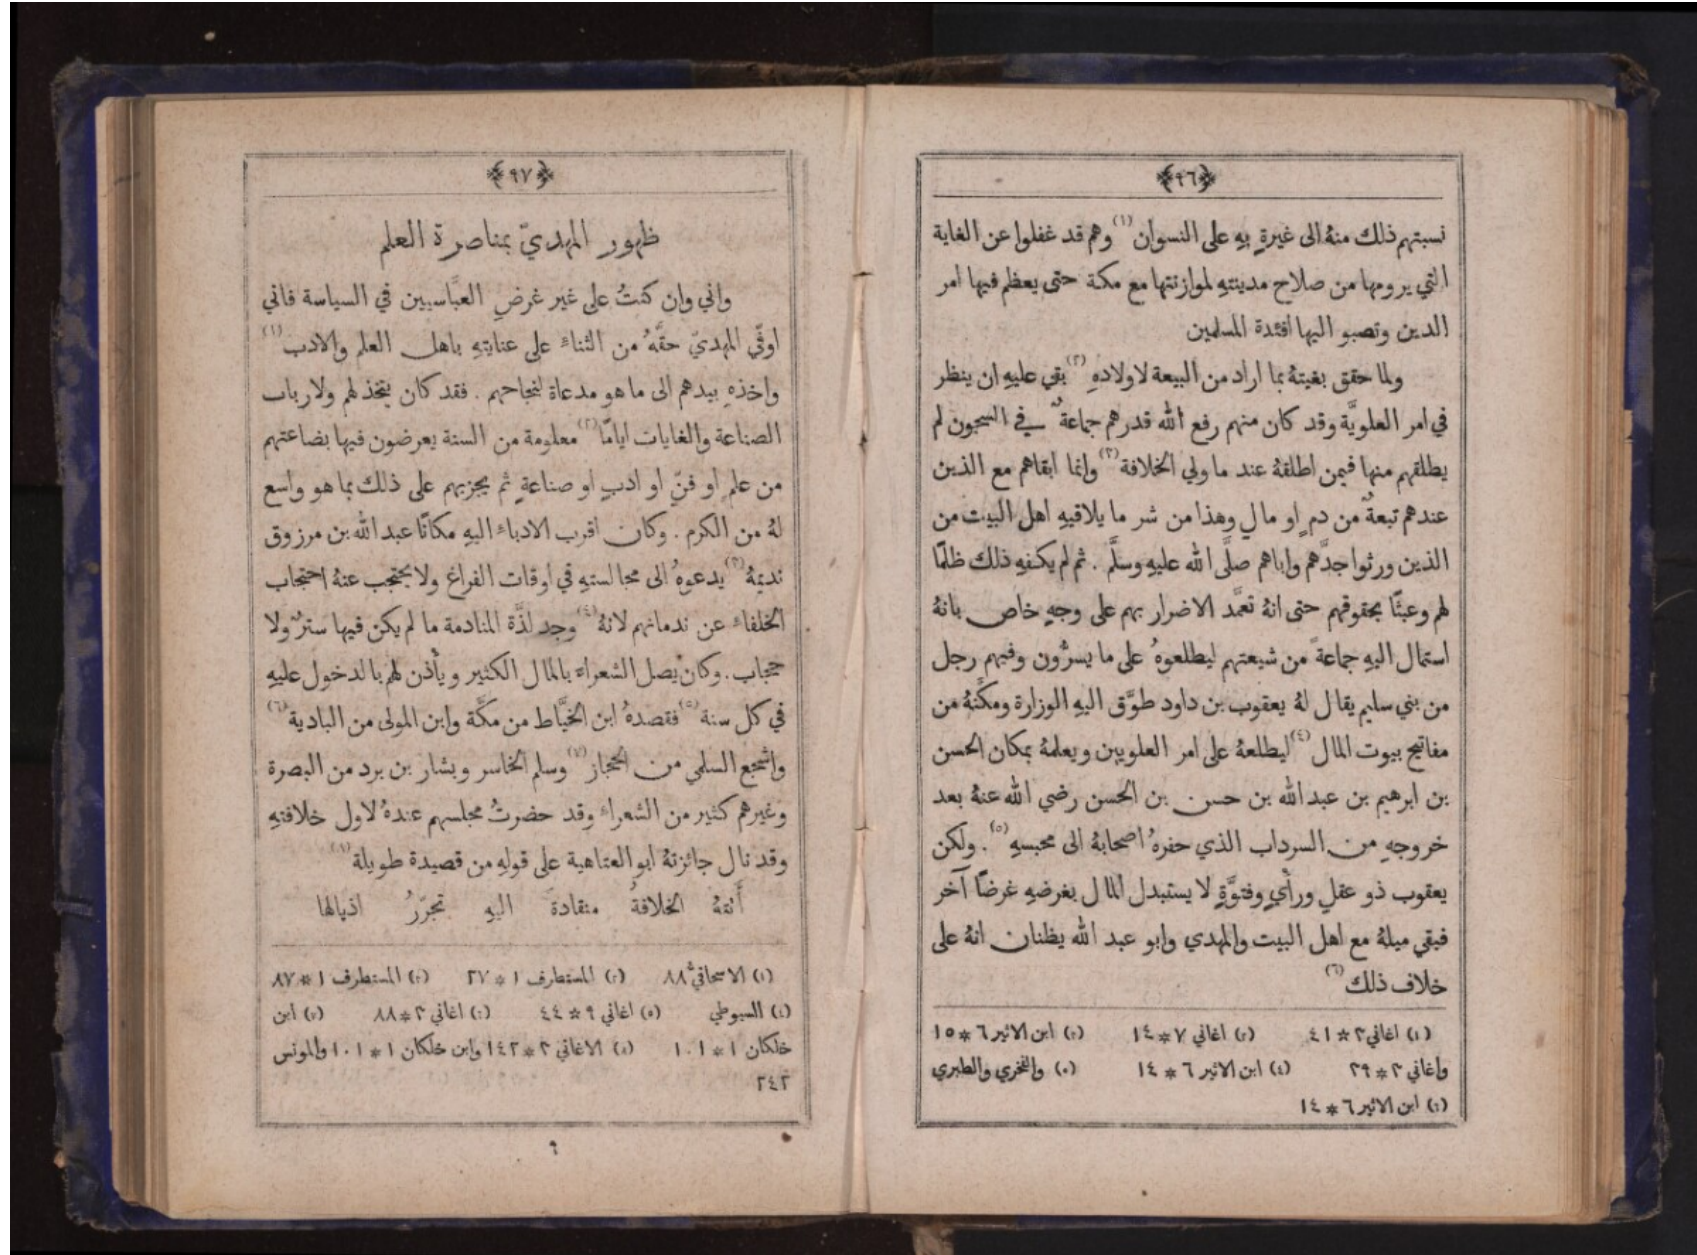 ﴿٩٦﴾
نسبتهم ذلك منهُ الى غيرةٍ بهِ على النسوان (١) وهم قد غفلوا عن الغاية
التي يرومها من صلاح مدينتهِ لموازنتها مع مكة حتى يعظم فيها امر
الدين وتصبو اليها افئدة المسلمين
ولما حقق بغيتهُ بما اراد من البيعة لاولادهِ (٢) بقي عليهِ ان ينظر
في امر العلويَّة وقد كان منهم رفع الله قدرهم جماعةٌ في السجون لم
يطلقهم منها فيمن اطلقهُ عند ما ولي الخلافة (٣) وانما ابقاهم مع الذين
عندهم تبعةٌ من دمٍ او مالٍ وهذا من شر ما يلاقيهِ اهل البيت من
الذين ورثوا جدَّهم واباهم صلَّى الله عليهِ وسلَّم . ثم لم يكفهِ ذلك ظلمًا
لهم وعبثًا بحقوقهم حتى انهُ تعمَّد الاضرار بهم على وجهٍ خاص بانهُ
استمال اليهِ جماعةً من شيعتهم ليطلعوهُ على ما يسرُّون وفيهم رجل
من بني سليم يقال لهُ يعقوب بن داود طوَّق اليهِ الوزارة ومكَّنهُ من
مفاتيح بيوت المال (٤) ليطلعهُ على امر العلويين ويعلمهُ بمكان الحسن
بن ابرهيم بن عبد الله بن حسن بن الحسن رضي الله عنهُ بعد
خروجهِ من السرداب الذي حفرهُ اصحابهُ الى محبسهِ (٥) . ولكن
يعقوب ذو عقلٍ ورأيٍ وفتوَّةٍ لا يستبدل المال بغرضهِ غرضًا آخر
فبقي ميلهُ مع اهل البيت والمهدي وابو عبد الله يظنان انهُ على
خلاف ذلك (٦)
(١) اغاني ٣ * ٤١ (٢) اغاني ٧ * ١٤ (٣) ابن الاثير ٦ * ١٥
واغاني ٣ * ٢٩ (٤) ابن الاثير ٦ * ١٤ (٥) والفخري والطبري
(٦) ابن الاثير ٦ * ١٤
﴿٩٧﴾
ظهور المهديّ بمناصرة العلم
واني وان كنتُ على غير غرضِ العبَّاسيين في السياسة فاني
اوفّي المهديّ حقَّهُ من الثناءِ على عنايتهِ باهل العلم والادب (١)
واخذهِ بيدهم الى ما هو مدعاة لنجاحهم . فقد كان يتخذ لهم ولارباب
الصناعة والغايات ايامًا (٢) معلومة من السنة يعرضون فيها بضاعتهم
من علمٍ او فنٍّ او ادبٍ او صناعةٍ ثم يجزيهم على ذلك بما هو واسع
لهُ من الكرم . وكان اقرب الادباءِ اليهِ مكانًا عبد الله بن مرزوق
نديمهُ (٣) يدعوهُ الى مجالستهِ في اوقات الفراغ ولا يحتجب عنهُ احتجاب
الخلفاءِ عن ندمائهم لانهُ (٤) وجد لذَّة المنادمة ما لم يكن فيها سترٌ ولا
حجاب . وكان يصل الشعراءَ بالمال الكثير ويأذن لهم بالدخول عليهِ
في كل سنة (٥) فقصدهُ ابن الخيَّاط من مكَّة وابن المولى من البادية (٦)
واشجع السلمي من الحجاز (٧) وسلم الخاسر وبشار بن برد من البصرة
وغيرهم كثير من الشعراءِ وقد حضرتُ مجلسهم عندهُ لاول خلافتهِ
وقد نال جائزتهُ ابو العتاهية على قولهِ من قصيدة طويلة (٨)
أَتتهُ الخلافةُ منقادةً اليهِ تجرّرُ اذيالها
(١) الاسحاقيّ ٨٨ (٢) المستطرف ١ * ٢٧ (٣) المستطرف ١ * ٨٧
(٤) السيوطي (٥) اغاني ٩ * ٤٤ (٦) اغاني ٣ * ٨٨ (٧) ابن
خلكان ١ * ١٠١ (٨) الاغاني ٣ * ١٤٣ وابن خلكان ١ * ١٠١ والمونس
٢٤٢
٩